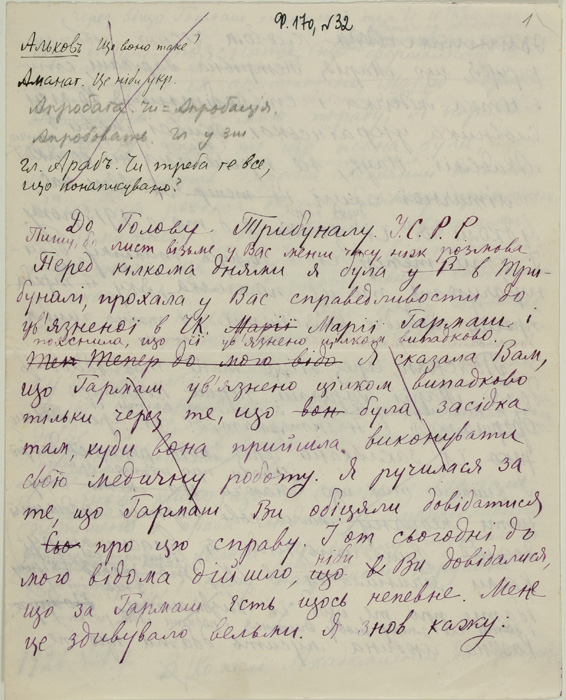 Ф. 170, №32
1
Альковъ Що воно таке?
Аманат. Це ніби укр.
Апробата. Чи = Апробація.
Апробовать. гл у
гл. Арабъ. Чи треба те все,
що понаписувано?
До Голови Трибуналу У.С.Р.Р
Пишу, б. лист візьме у Вас менш часу, ніж розмова
Перед кілкома днями я була у В в Три-
буналі, прохала у Вас справедливости до
ув'язненої в ЧК. Марії Марії Гармаш і
пояснила, що її ув'язнено цілком випадково.
Тен Тепер до мого відо Я сказала Вам,
що Гармаш ув'язнено цілком випадково
тільки через те, що вон була засідка
там, куди вона прийшла виконувати
свою медичну роботу. Я ручилася за
те, що Гармаш Ви обіцяли довідатися
про цю справу. І от сьогодні до
мого відома дійшло, ніби що в Ви довідалися,
що за Гармаш єсть щось непевне. Мене
це здивувало вельми. Я знов кажу: